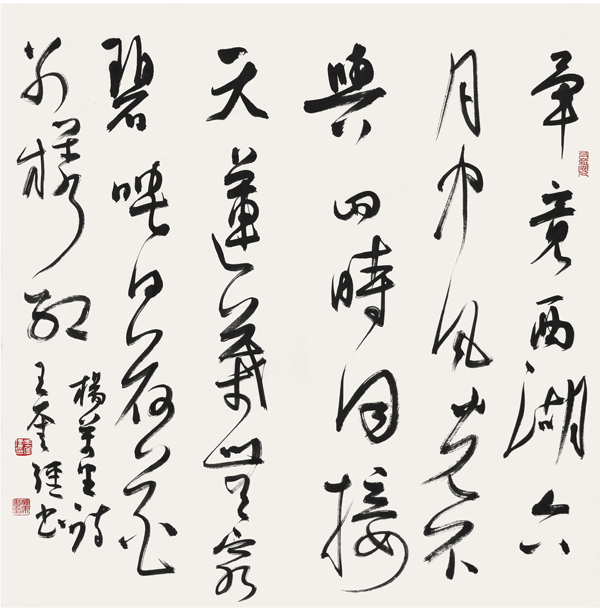 畢竟西湖六
月中風光不
與四時同接
天蓮葉無窮
碧映日荷花
别樣紅
楊萬里詩
王書